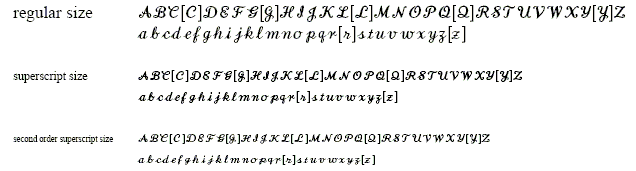 regular size ABC[C]DEFG[G]HIJKL[L]MNOPQ[Q]RSTUVWXY[Y]Z
abcdefghijklmnopqr[r]stuvwxyz[z]
superscript size ABC[C]DEFG[G]HIJKL[L]MNOPQ[Q]RSTUVWXY[Y]Z
abcdefghijklmnopqr[r]stuvwxyz[z]
second order superscript size ABC[C]DEFG[G]HIJKL[L]MNOPQ[Q]RSTUVWXY[Y]Z
abcdefghijklmnopqr[r]stuvwxyz[z]